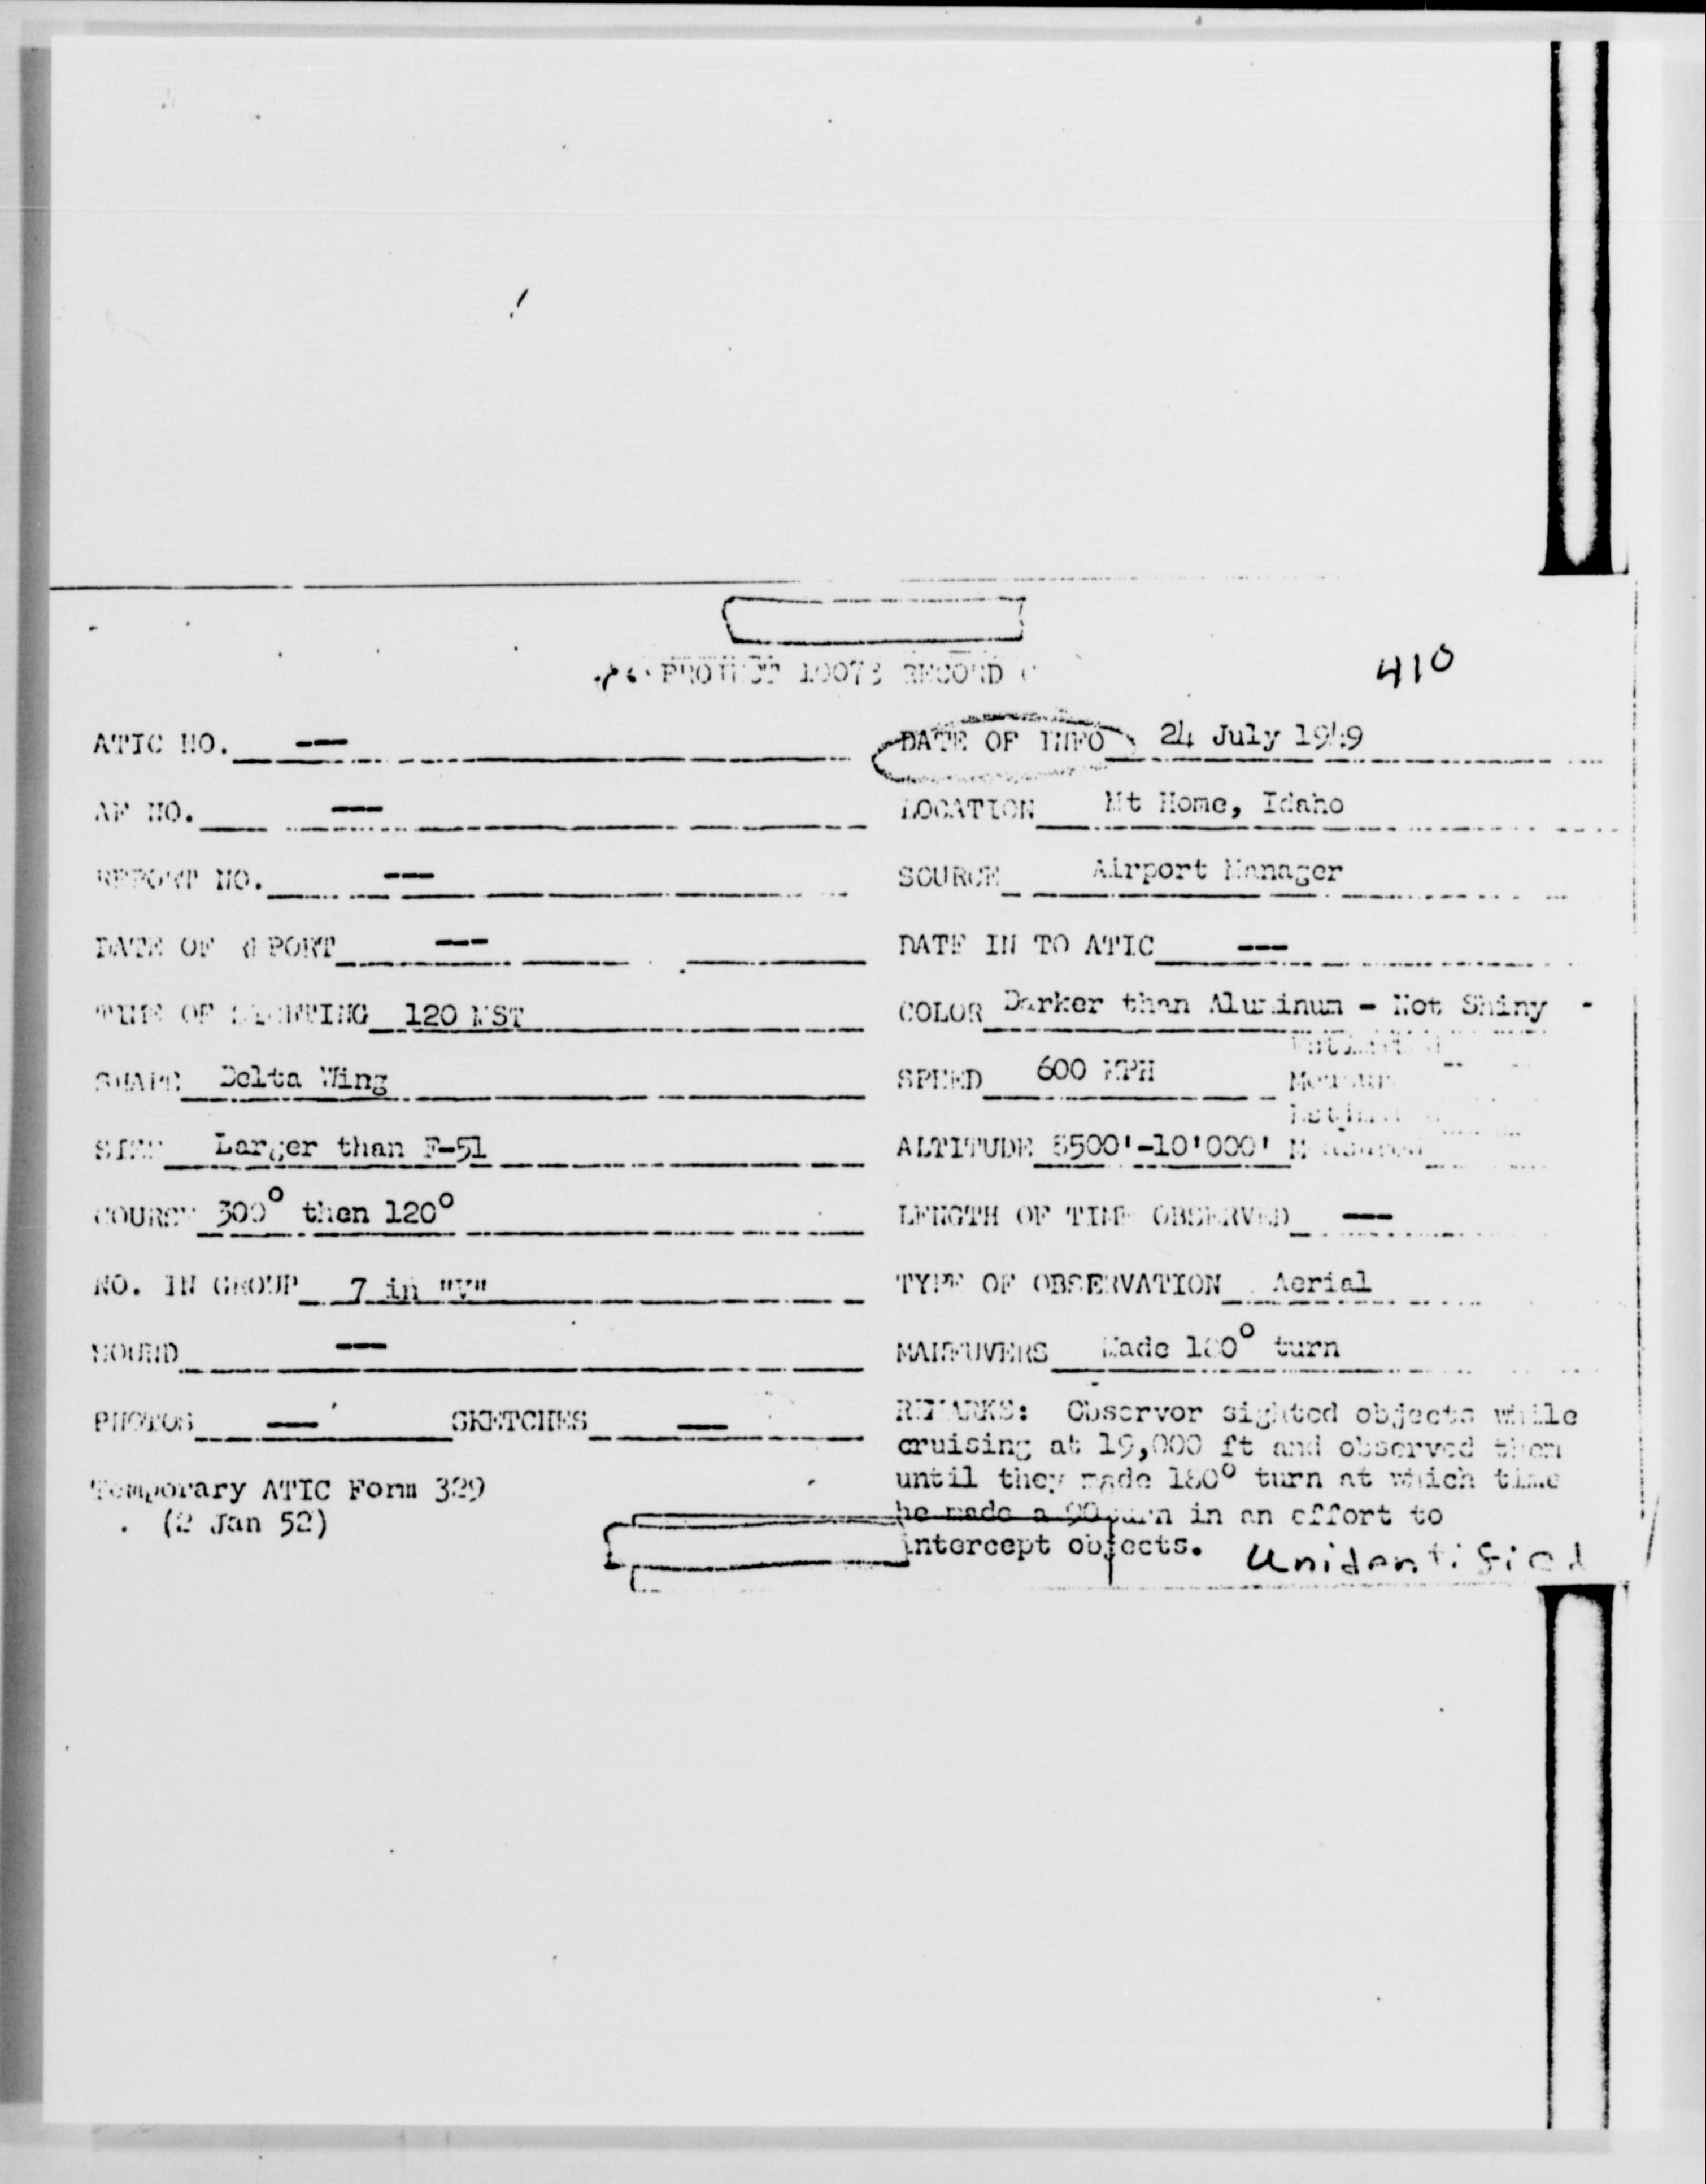 PROJECT 10073 RECORD
410
ATIC NO. --
DATE OF INFO 24 July 1949
AF NO. --
LOCATION Mt Home, Idaho
REPORT NO. --
SOURCE Airport Manager
DATE OF REPORT --
DATE IN TO ATIC --
TIME OF SIGHTING 120 MST
COLOR Darker than Aluminum - Not Shiny
SHAPE Delta Wing
SPEED 600 MPH
SIZE Larger than F-51
ALTITUDE -10'000' Measured
COURSE 300° then 120°
LENGTH OF TIME OBSERVED --
NO. IN GROUP 7 in "V"
TYPE OF OBSERVATION Aerial
SOUND --
MANEUVERS Made 180° turn
PHOTOS -- SKETCHES --
REMARKS: Observor sighted objects while
cruising at 19,000 ft and observed them
until they made 180° turn at which time
he made a 90 turn in an effort to
intercept objects.
Unidentified
Temporary ATIC Form 329
(2 Jan 52)